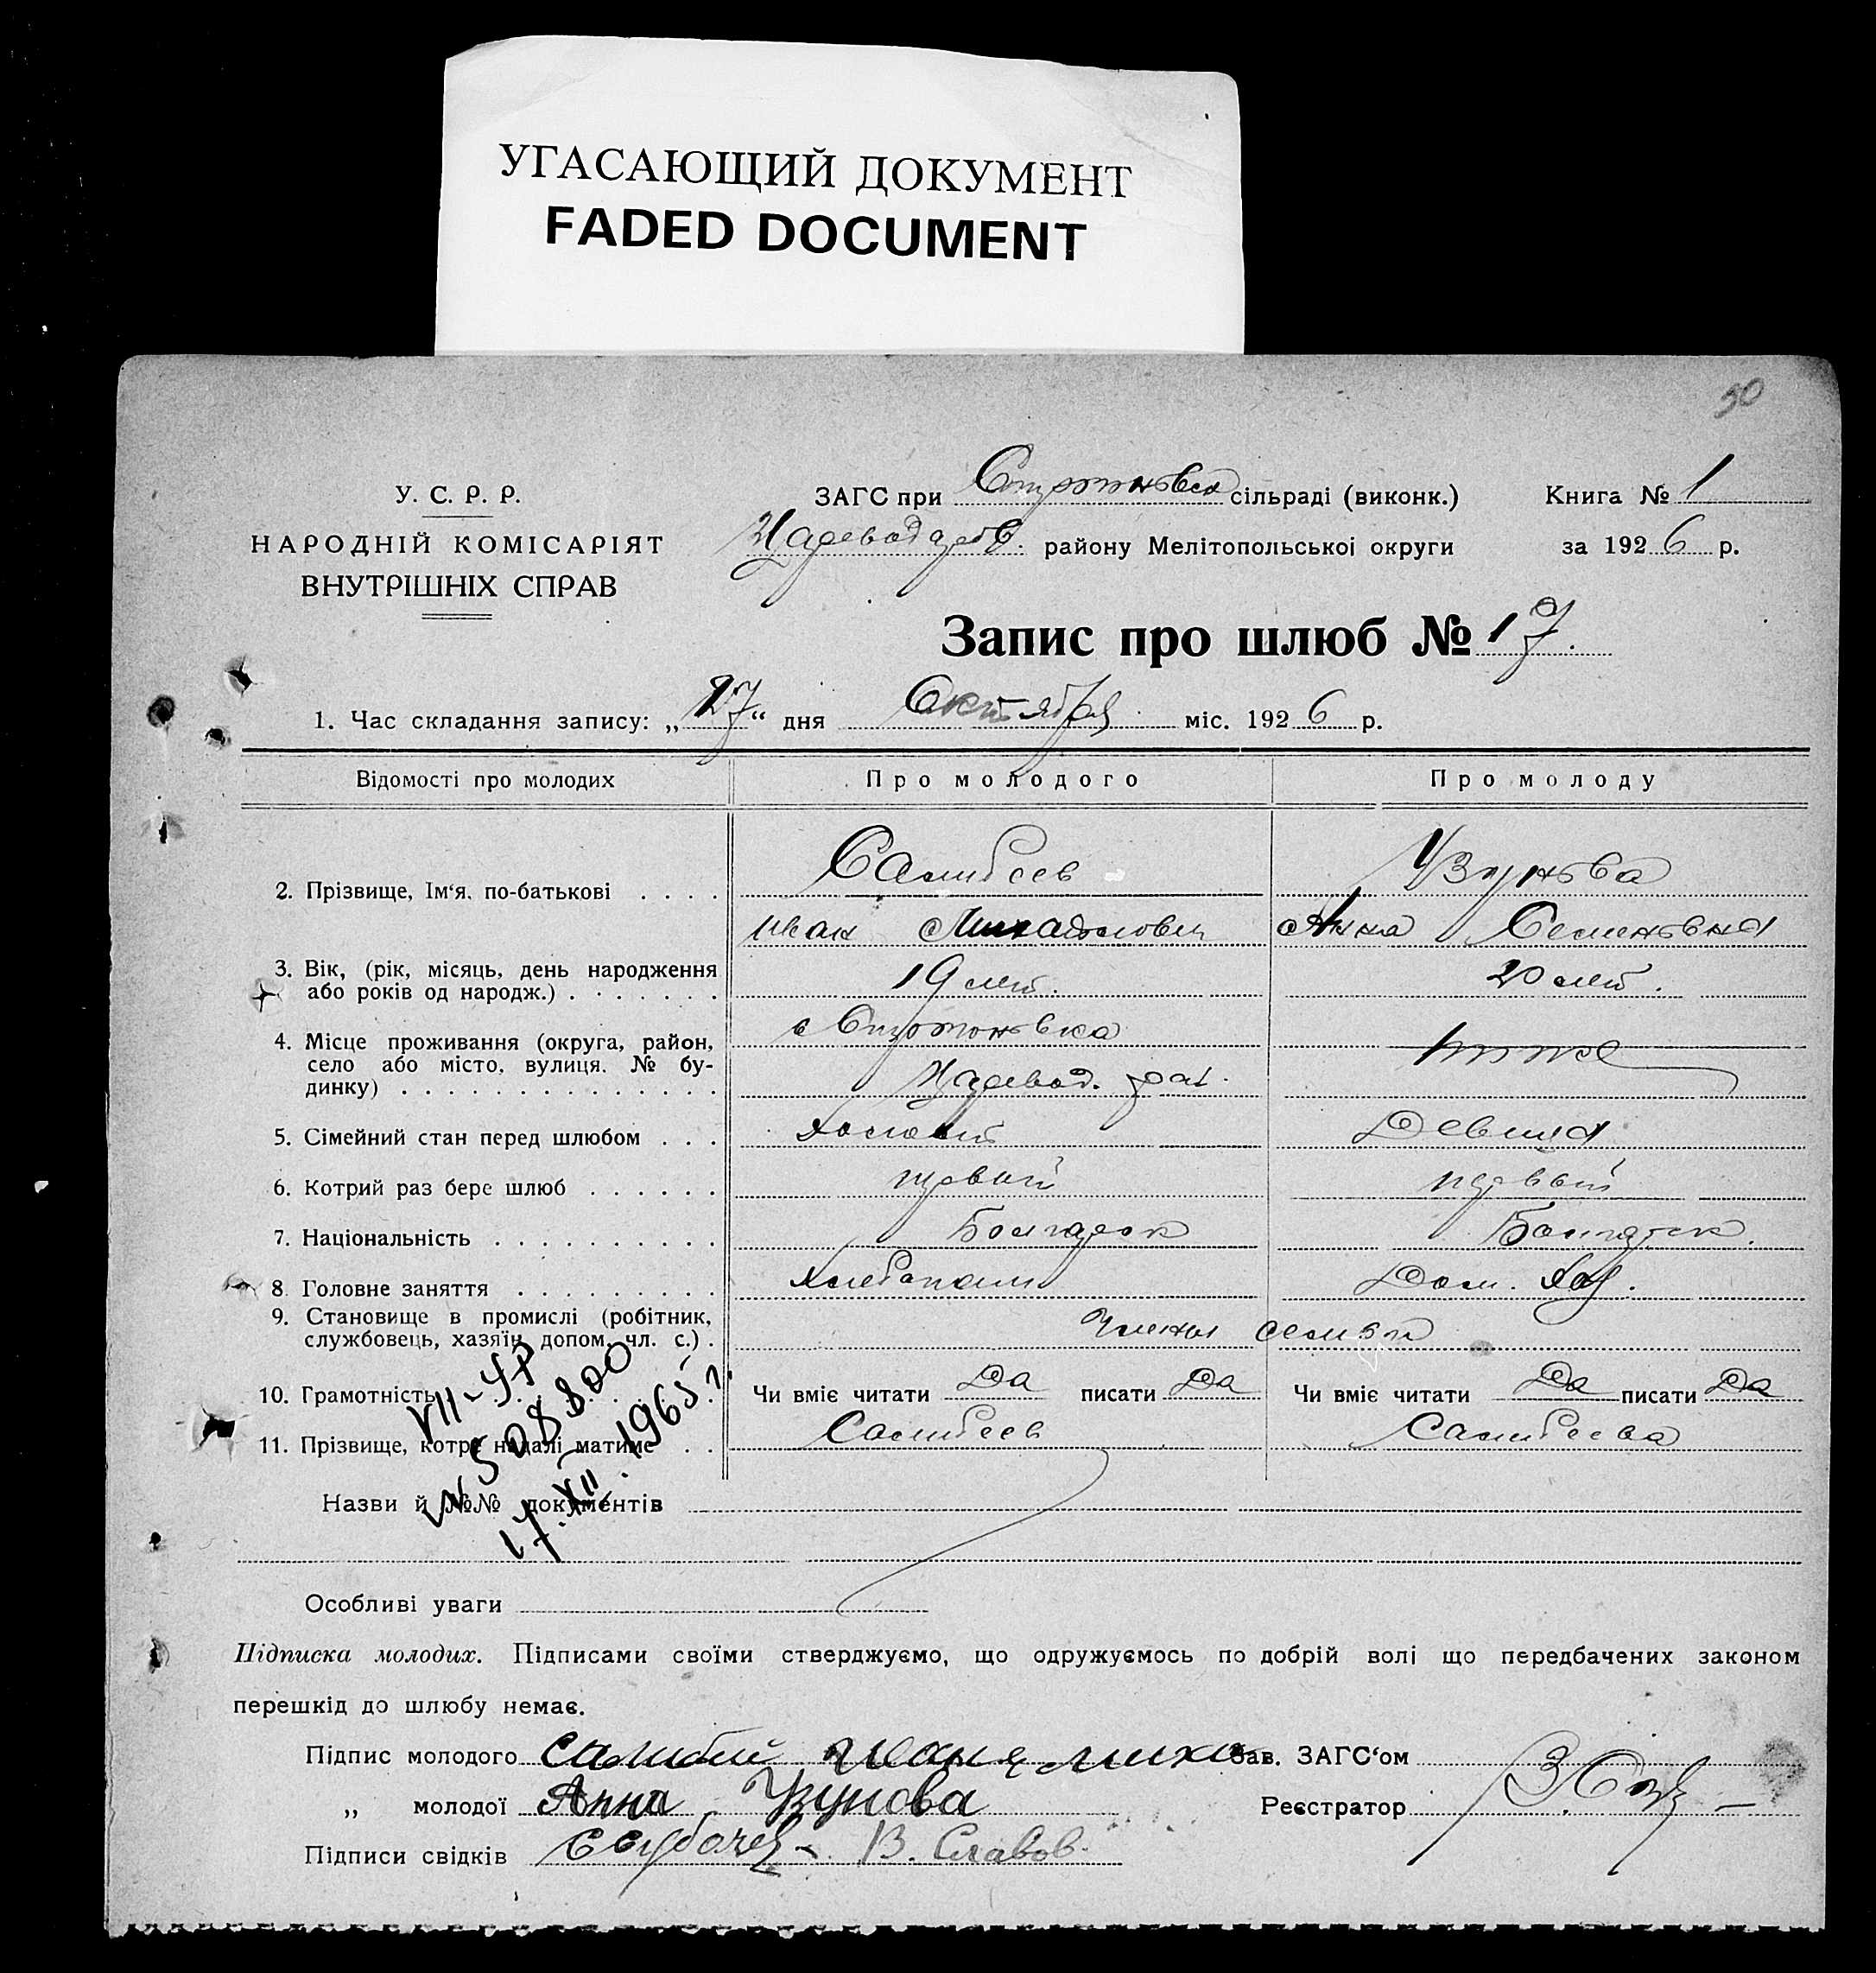 УГАСАЮЩИЙ ДОКУМЕНТ
FADED DOCUMENT
50
У. С. Р. Р.
НАРОДНІЙ КОМІСАРІЯТ
ВНУТРІШНІХ СПРАВ
ЗАГС при сільраді (виконк.)
Цареводаров. району Мелітопольської округи
Книга № 1
за 1926 р.
Запис про шлюб № 17.
1. Час складання запису: „27“ дня Октября міс. 1926 р.
Відомості про молодих Про молодого Про молоду
2. Прізвище, Ім‘я, по-батькові . . . . Салибеев Узунова
Иван Михайлович Анна Семеновна
3. Вік, (рік, місяць, день народження
або років од народж.) . . . . . . . 19 лет. 20 лет.
4. Місце проживання (округа, район,
село або місто, вулиця, № бу-
динку) . . . . . . . . . . . . . . Царевод. рай.
5. Сімейний стан перед шлюбом . . . Холост Девица
6. Котрий раз бере шлюб . . . . . . первый первый
7. Національність . . . . . . . . . . Болгарск Болгарск.
8. Головне заняття . . . . . . . . . Хлебопаш Дом. Хоз.
9. Становище в промислі (робітник,
службовець, хазяїн, допом. чл. с.) . Члены семьи
10. Грамотність Чи вміє читати Да писати Да Чи вміє читати Да писати Да
11. Прізвище, котре надалі матиме . . Салибеев Салибеева
VII-УР
№ 508800
17.XII.1965 г.
Назви й №№ документів
Особливі уваги
Підписка молодих. Підписами своїми стверджуємо, що одружуємось по добрій волі що передбачених законом
перешкід до шлюбу немає.
Підпис молодого Зав. ЗАГС‘ом
„ молодої Анна Узунова Реєстратор
Підписи свідків В. Славов.